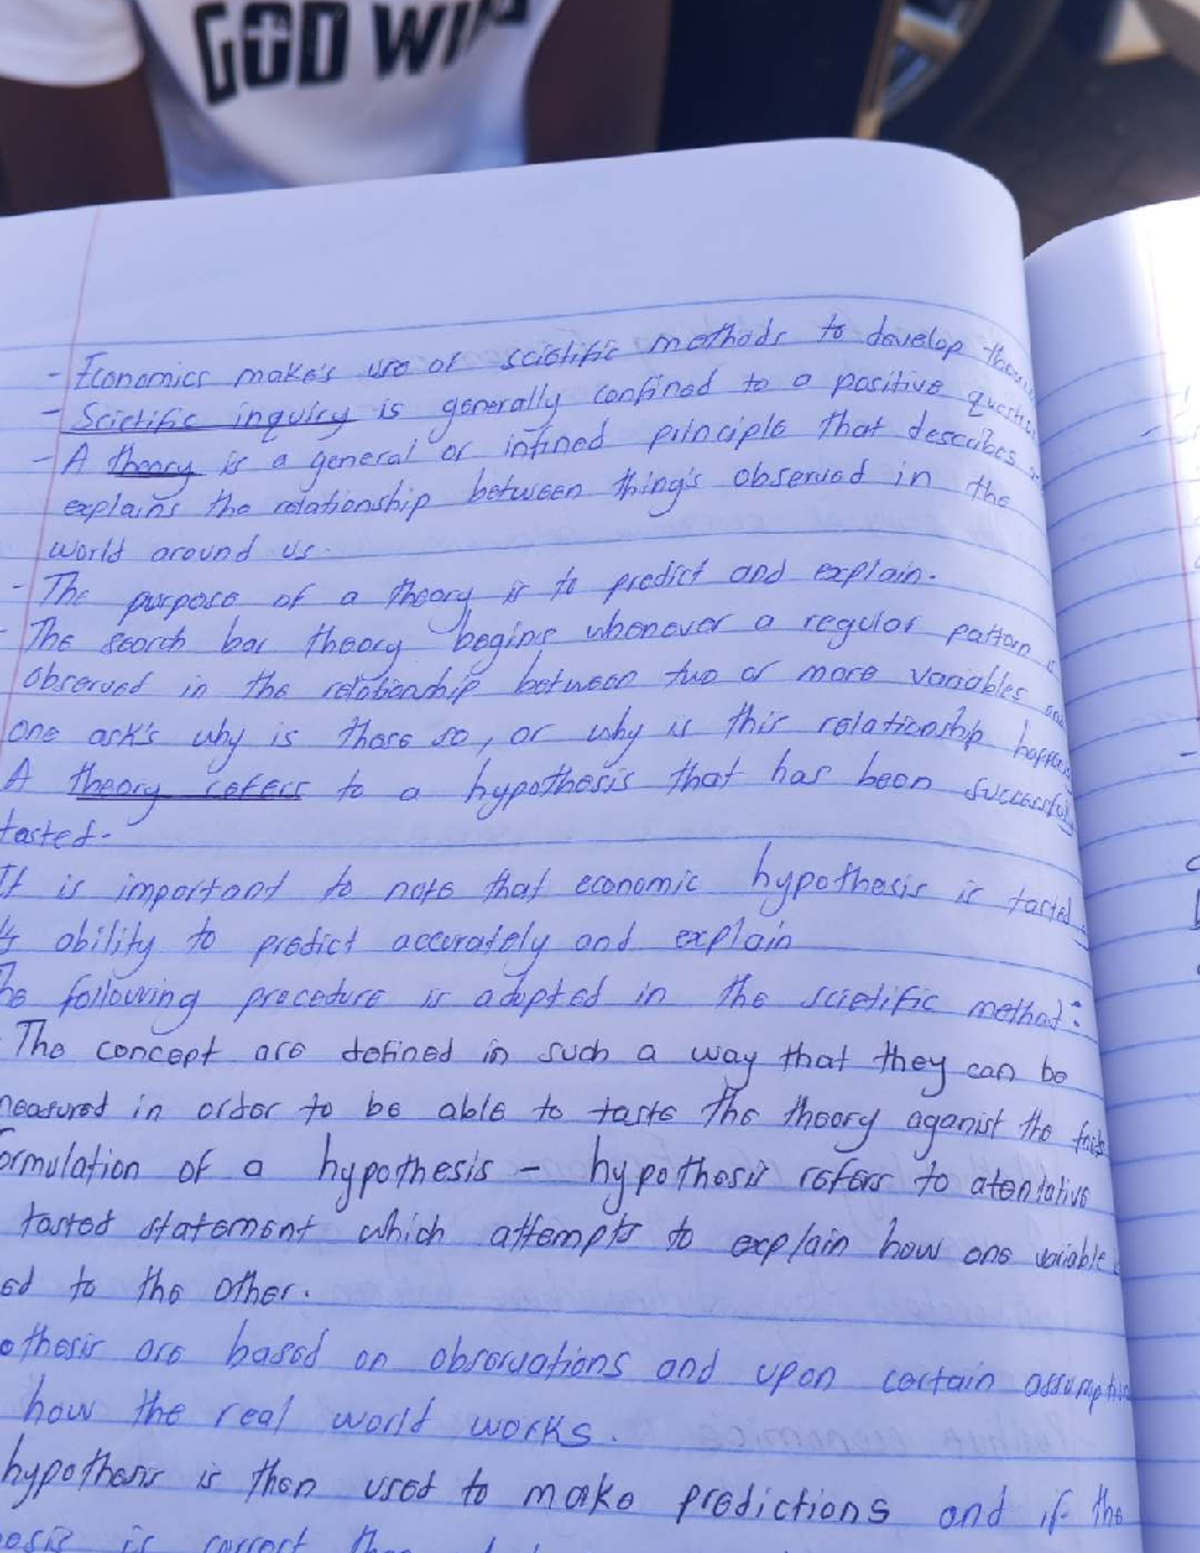 GOD WINS
- Economics make's use of scietific methods to develop
- Scietific inquiry is generally confined to a positive
- A theory is a general or infined principle that describes
explains the relationship between thing's observed in the
world around us.
- The purpose of a theory is to predict and explain.
- The search bar theory begins whenever a regular pattern
observed in the relationship between two or more variables and
one ask's why is there so, or why is this relationship
A theory refers to a hypothesis that has been
tested.
It is important to note that economic hypothesis is tested
ability to predict accurately and explain
following procedure is adopted in the scietific method:
The concept are defined in such a way that they can be
measured in order to be able to taste the theory aganist the
ormulation of a hypothesis - hypothesis refers to atentative
tasted statement which attempts to explain how one variable
ed to the other.
othesis are based on observations and upon certain
how the real world works.
hypothesis is then used to make predictions and if the